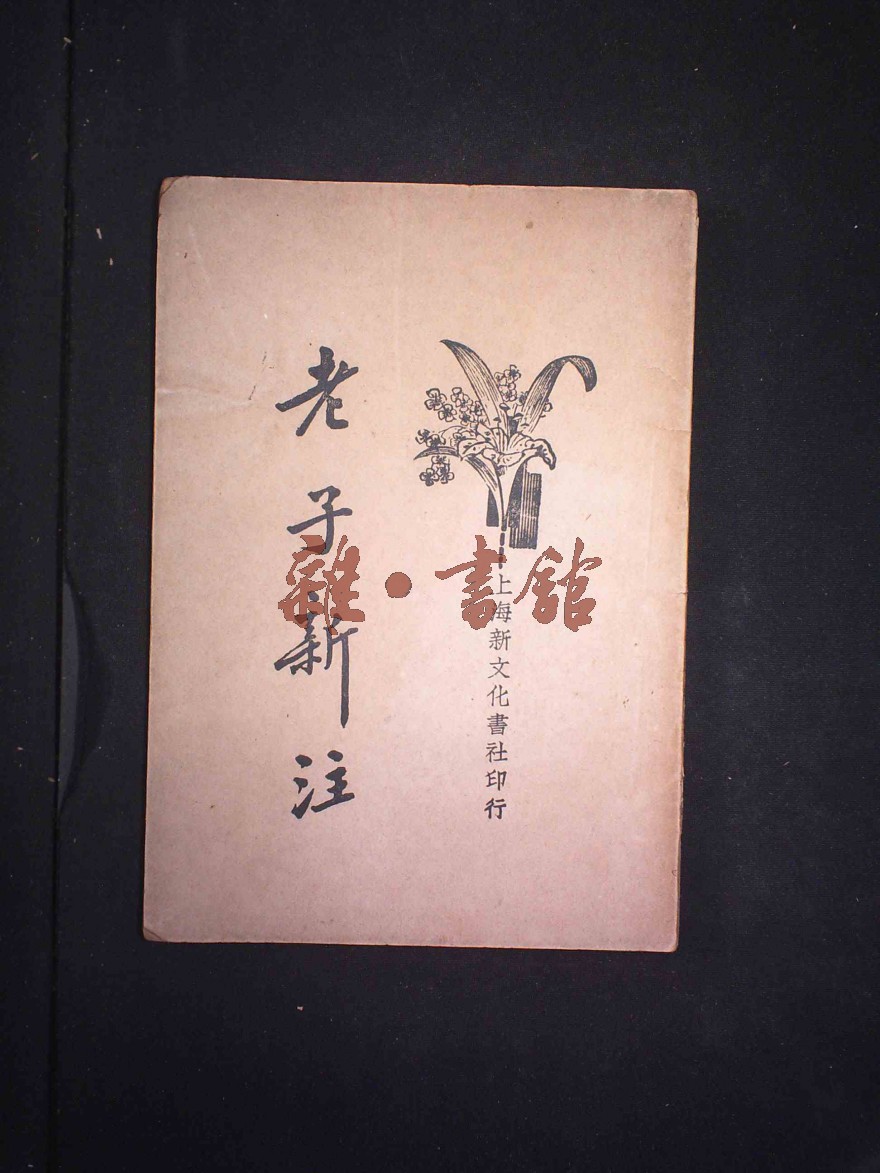 上海新文化書社印行
老子新注
雜·書館